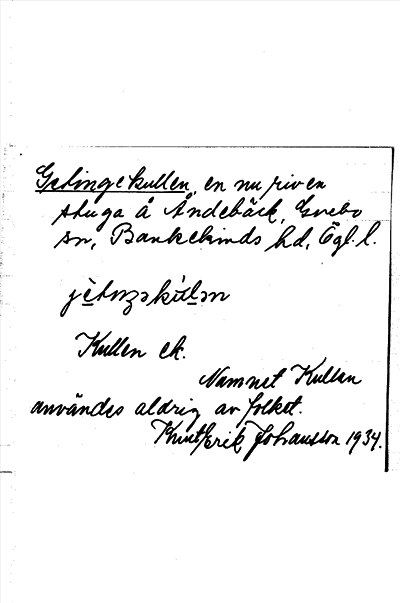 Getingekullen, en nu riven
stuga å Åndebäck, Grebo
sn, Bankekinds hd, Ögl. l.
jètɪŋəkùlən
Kullen ek.
Namnet Kullen
användes aldrig av folket.
Knut Erik Johansson 1934.